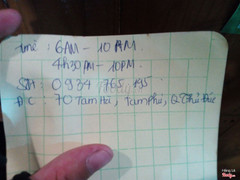 Time : 6AM - 10AM
4h30PM - 10PM.
SĐT : 0934 765 195
Đ/C : 70 Tam Hà, Tam Phú, Q. Thủ Đức